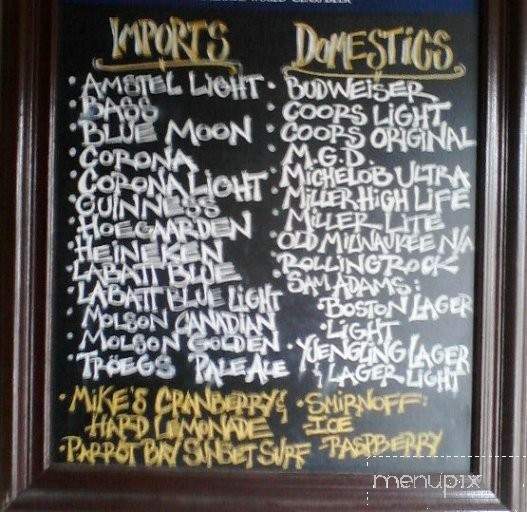 WORLD CLASS BEER
IMPORTS
· AMSTEL LIGHT
· BASS
· BLUE MOON
· CORONA
· CORONA LIGHT
· GUINNESS
· HOEGAARDEN
· HEINEKEN
· LABATT BLUE
· LABATT BLUE LIGHT
· MOLSON CANADIAN
· MOLSON GOLDEN
· TRÖEGS PALE ALE
DOMESTICS
· BUDWEISER
· COORS LIGHT
· COORS ORIGINAL
· M.G.D.
· MICHELOB ULTRA
· MILLER HIGH LIFE
· MILLER LITE
· OLD MILWAUKEE N/A
· ROLLING ROCK
· SAM ADAMS:
· BOSTON LAGER
· LIGHT
· YUENGLING LAGER
& LAGER LIGHT
· MIKE'S CRANBERRY &
HARD LEMONADE
· PARROT BAY SUNSET SURF
· SMIRNOFF:
-ICE
-RASPBERRY
menupix